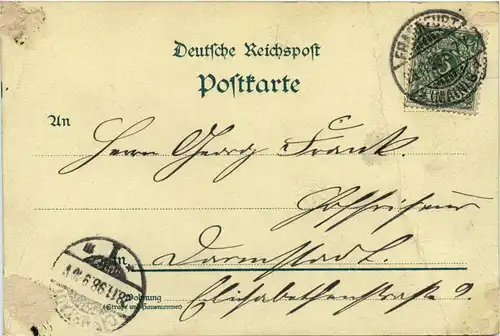 Deutsche Reichspost
Postkarte
An
Herrn Georg Frank.
Hoffriseur
in
Darmstadt.
Wohnung
(Straße und Hausnummer)
Elisabethenstraße 9.
FRANKFURT
(MAIN)
5